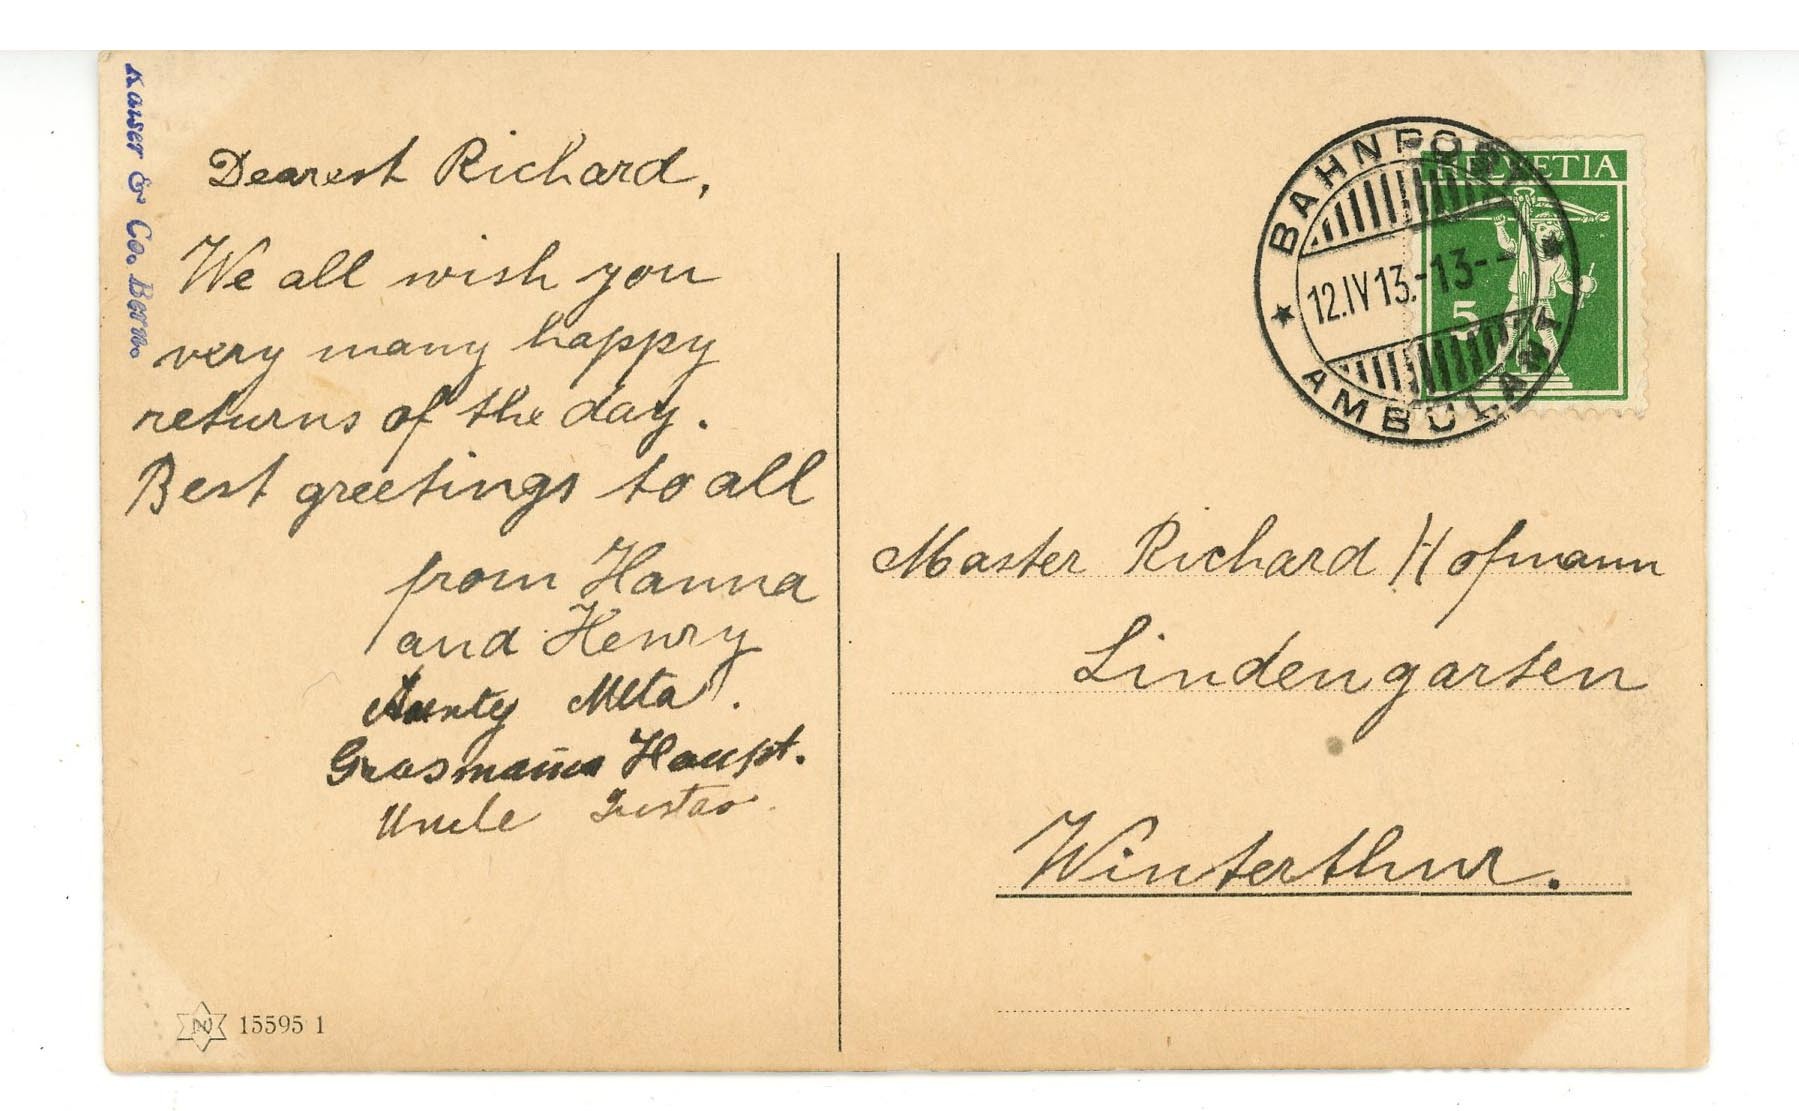 Kaiser & Co. Bern.
Dearest Richard,
We all wish you
very many happy
returns of the day.
Best greetings to all
from Hanna
and Henry
Aunty Meta.
Haupt.
Uncle Gustav.
15595 1
BAHNPOST
12.IV 13.-13--
AMBULANT
HELVETIA
5
Master Richard Hofmann
Lindengarten
Winterthur.